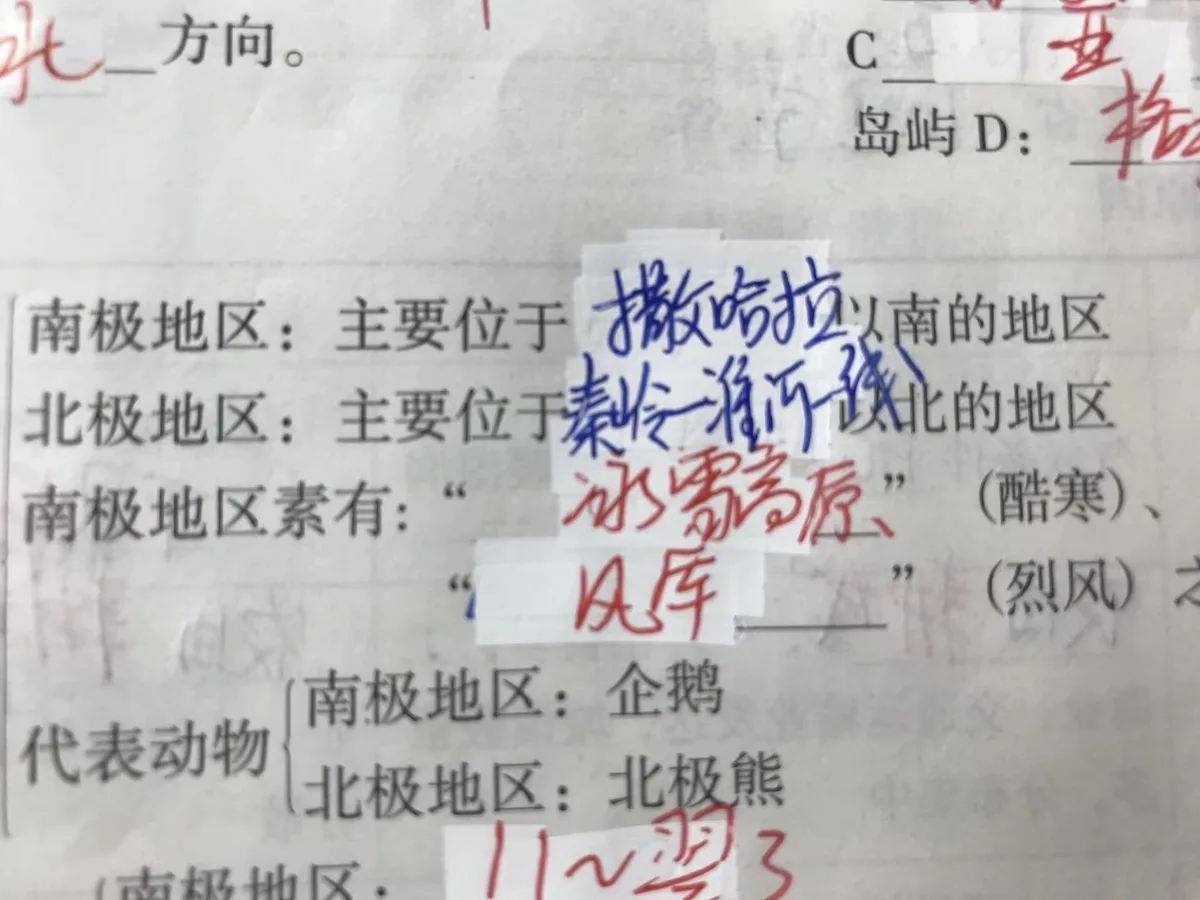 北 方向。
C 亚
岛屿 D： 格
南极地区：主要位于撒哈拉以南的地区
北极地区：主要位于秦岭一淮河一线以北的地区
南极地区素有：“冰雪高原”（酷寒）、
“风库”（烈风）之
代表动物
南极地区：企鹅
北极地区：北极熊
南极地区：11~翌3